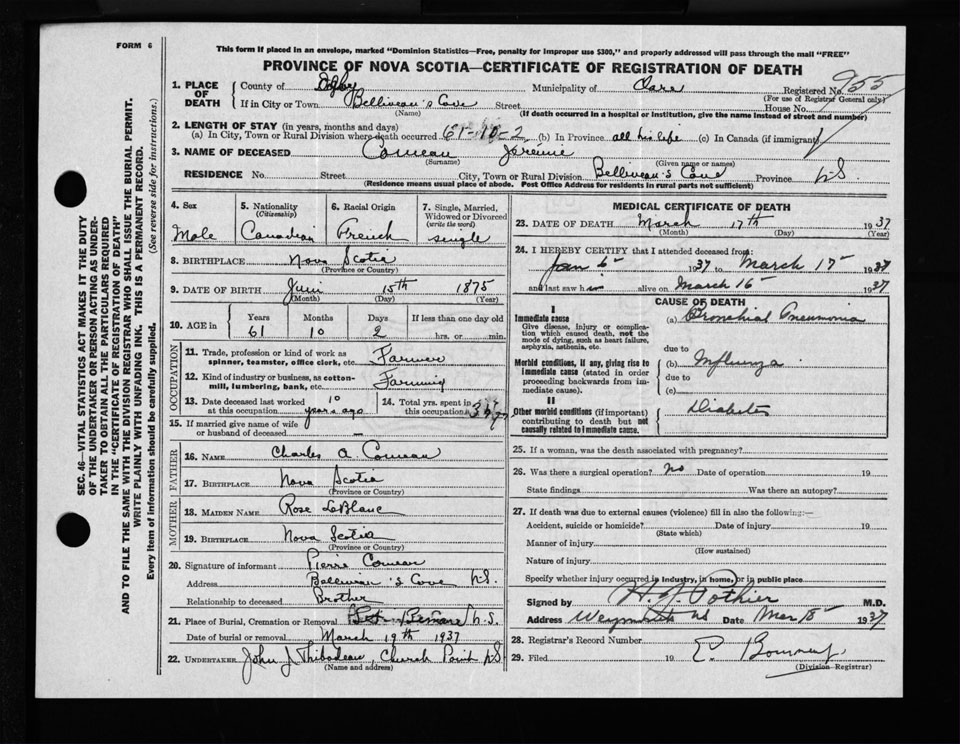 FORM 6
This form if placed in an envelope, marked "Dominion Statistics—Free, penalty for improper use $300," and properly addressed will pass through the mail "FREE"
PROVINCE OF NOVA SCOTIA—CERTIFICATE OF REGISTRATION OF DEATH
SEC. 46—VITAL STATISTICS ACT MAKES IT THE DUTY
OF THE UNDERTAKER OR PERSON ACTING AS UNDER-
TAKER TO OBTAIN ALL THE PARTICULARS REQUIRED
IN THE "CERTIFICATE OF REGISTRATION OF DEATH"
AND TO FILE THE SAME WITH THE DIVISION REGISTRAR WHO SHALL ISSUE THE BURIAL PERMIT.
WRITE PLAINLY WITH UNFADING INK. THIS IS A PERMANENT RECORD.
Every item of information should be carefully supplied. (See reverse side for instructions.)
1. PLACE OF DEATH County of Digby Municipality of Clare Registered No. 955
(For use of Registrar General only)
If in City or Town Belliveau's Cove Street House No.
(Name) (If death occurred in a hospital or institution, give the name instead of street and number)
2. LENGTH OF STAY (in years, months and days)
(a) In City, Town or Rural Division where death occurred 61-10-2 (b) In Province all his life (c) In Canada (if immigrant)
3. NAME OF DECEASED Comeau Jérémie
(Surname) (Given name or names)
RESIDENCE No. Street City, Town or Rural Division Belliveau's Cove Province N.S.
(Residence means usual place of abode. Post Office Address for residents in rural parts not sufficient)
4. Sex
Male
5. Nationality
(Citizenship)
Canadian
6. Racial Origin
French
7. Single, Married, Widowed or Divorced
(write the word)
single
8. BIRTHPLACE Nova Scotia
(Province or Country)
9. DATE OF BIRTH June 15th 1875
(Month) (Day) (Year)
10. AGE in Years Months Days If less than one day old
61 10 2 hrs. or min.
OCCUPATION
11. Trade, profession or kind of work as
spinner, teamster, office clerk, etc. Farmer
12. Kind of industry or business, as cotton-
mill, lumbering, bank, etc. Farming
13. Date deceased last worked
at this occupation 10 years ago
14. Total yrs. spent in
this occupation
15. If married give name of wife
or husband of deceased —
FATHER
16. NAME Charles A Comeau
17. BIRTHPLACE Nova Scotia
(Province or Country)
MOTHER
18. MAIDEN NAME Rose LeBlanc
19. BIRTHPLACE Nova Scotia
(Province or Country)
20. Signature of informant Pierre Comeau
Address Belliveau's Cove N.S.
Relationship to deceased Brother
21. Place of Burial, Cremation or Removal N.S.
Date of burial or removal March 19th 1937
22. UNDERTAKER John J Thibodeau, Church Point N.S.
(Name and address)
MEDICAL CERTIFICATE OF DEATH
23. DATE OF DEATH March 17th 1937
(Month) (Day) (Year)
24. I HEREBY CERTIFY that I attended deceased from:
Jan 1937 to March 17 1937
and last saw him alive on March 16 1937
CAUSE OF DEATH
I
Immediate cause
Give disease, injury or complica-
tion which caused death, not the
mode of dying, such as heart failure,
asphyxia, asthenia, etc.
(a) Bronchial Pneumonia
due to
Morbid conditions, if any, giving rise to
immediate cause (stated in order
proceeding backwards from im-
mediate cause).
(b) Influenza
due to
(c)
II
Other morbid conditions (if important)
contributing to death but not
causally related to immediate cause.
Diabetes
25. If a woman, was the death associated with pregnancy?
26. Was there a surgical operation? No Date of operation 19
State findings Was there an autopsy?
27. If death was due to external causes (violence) fill in also the following:—
Accident, suicide or homicide? Date of injury 19
(State which)
Manner of injury
(How sustained)
Nature of injury
Specify whether injury occurred in industry, in home, or in public place
Signed by Pothier M.D.
Address Weymouth NS Date Mar 1937
28. Registrar's Record Number
29. Filed 19
(Division Registrar)